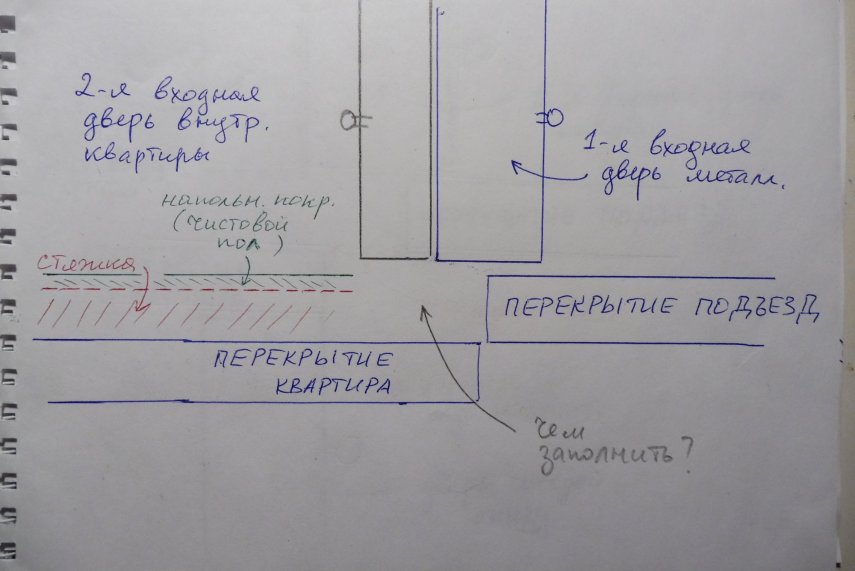 2-я входная
дверь внутр.
квартиры
1-я входная
дверь металл.
напольн. покр.
(чистовой
пол)
стяжка
ПЕРЕКРЫТИЕ ПОДЪЕЗД
ПЕРЕКРЫТИЕ
КВАРТИРА
чем
заполнить?